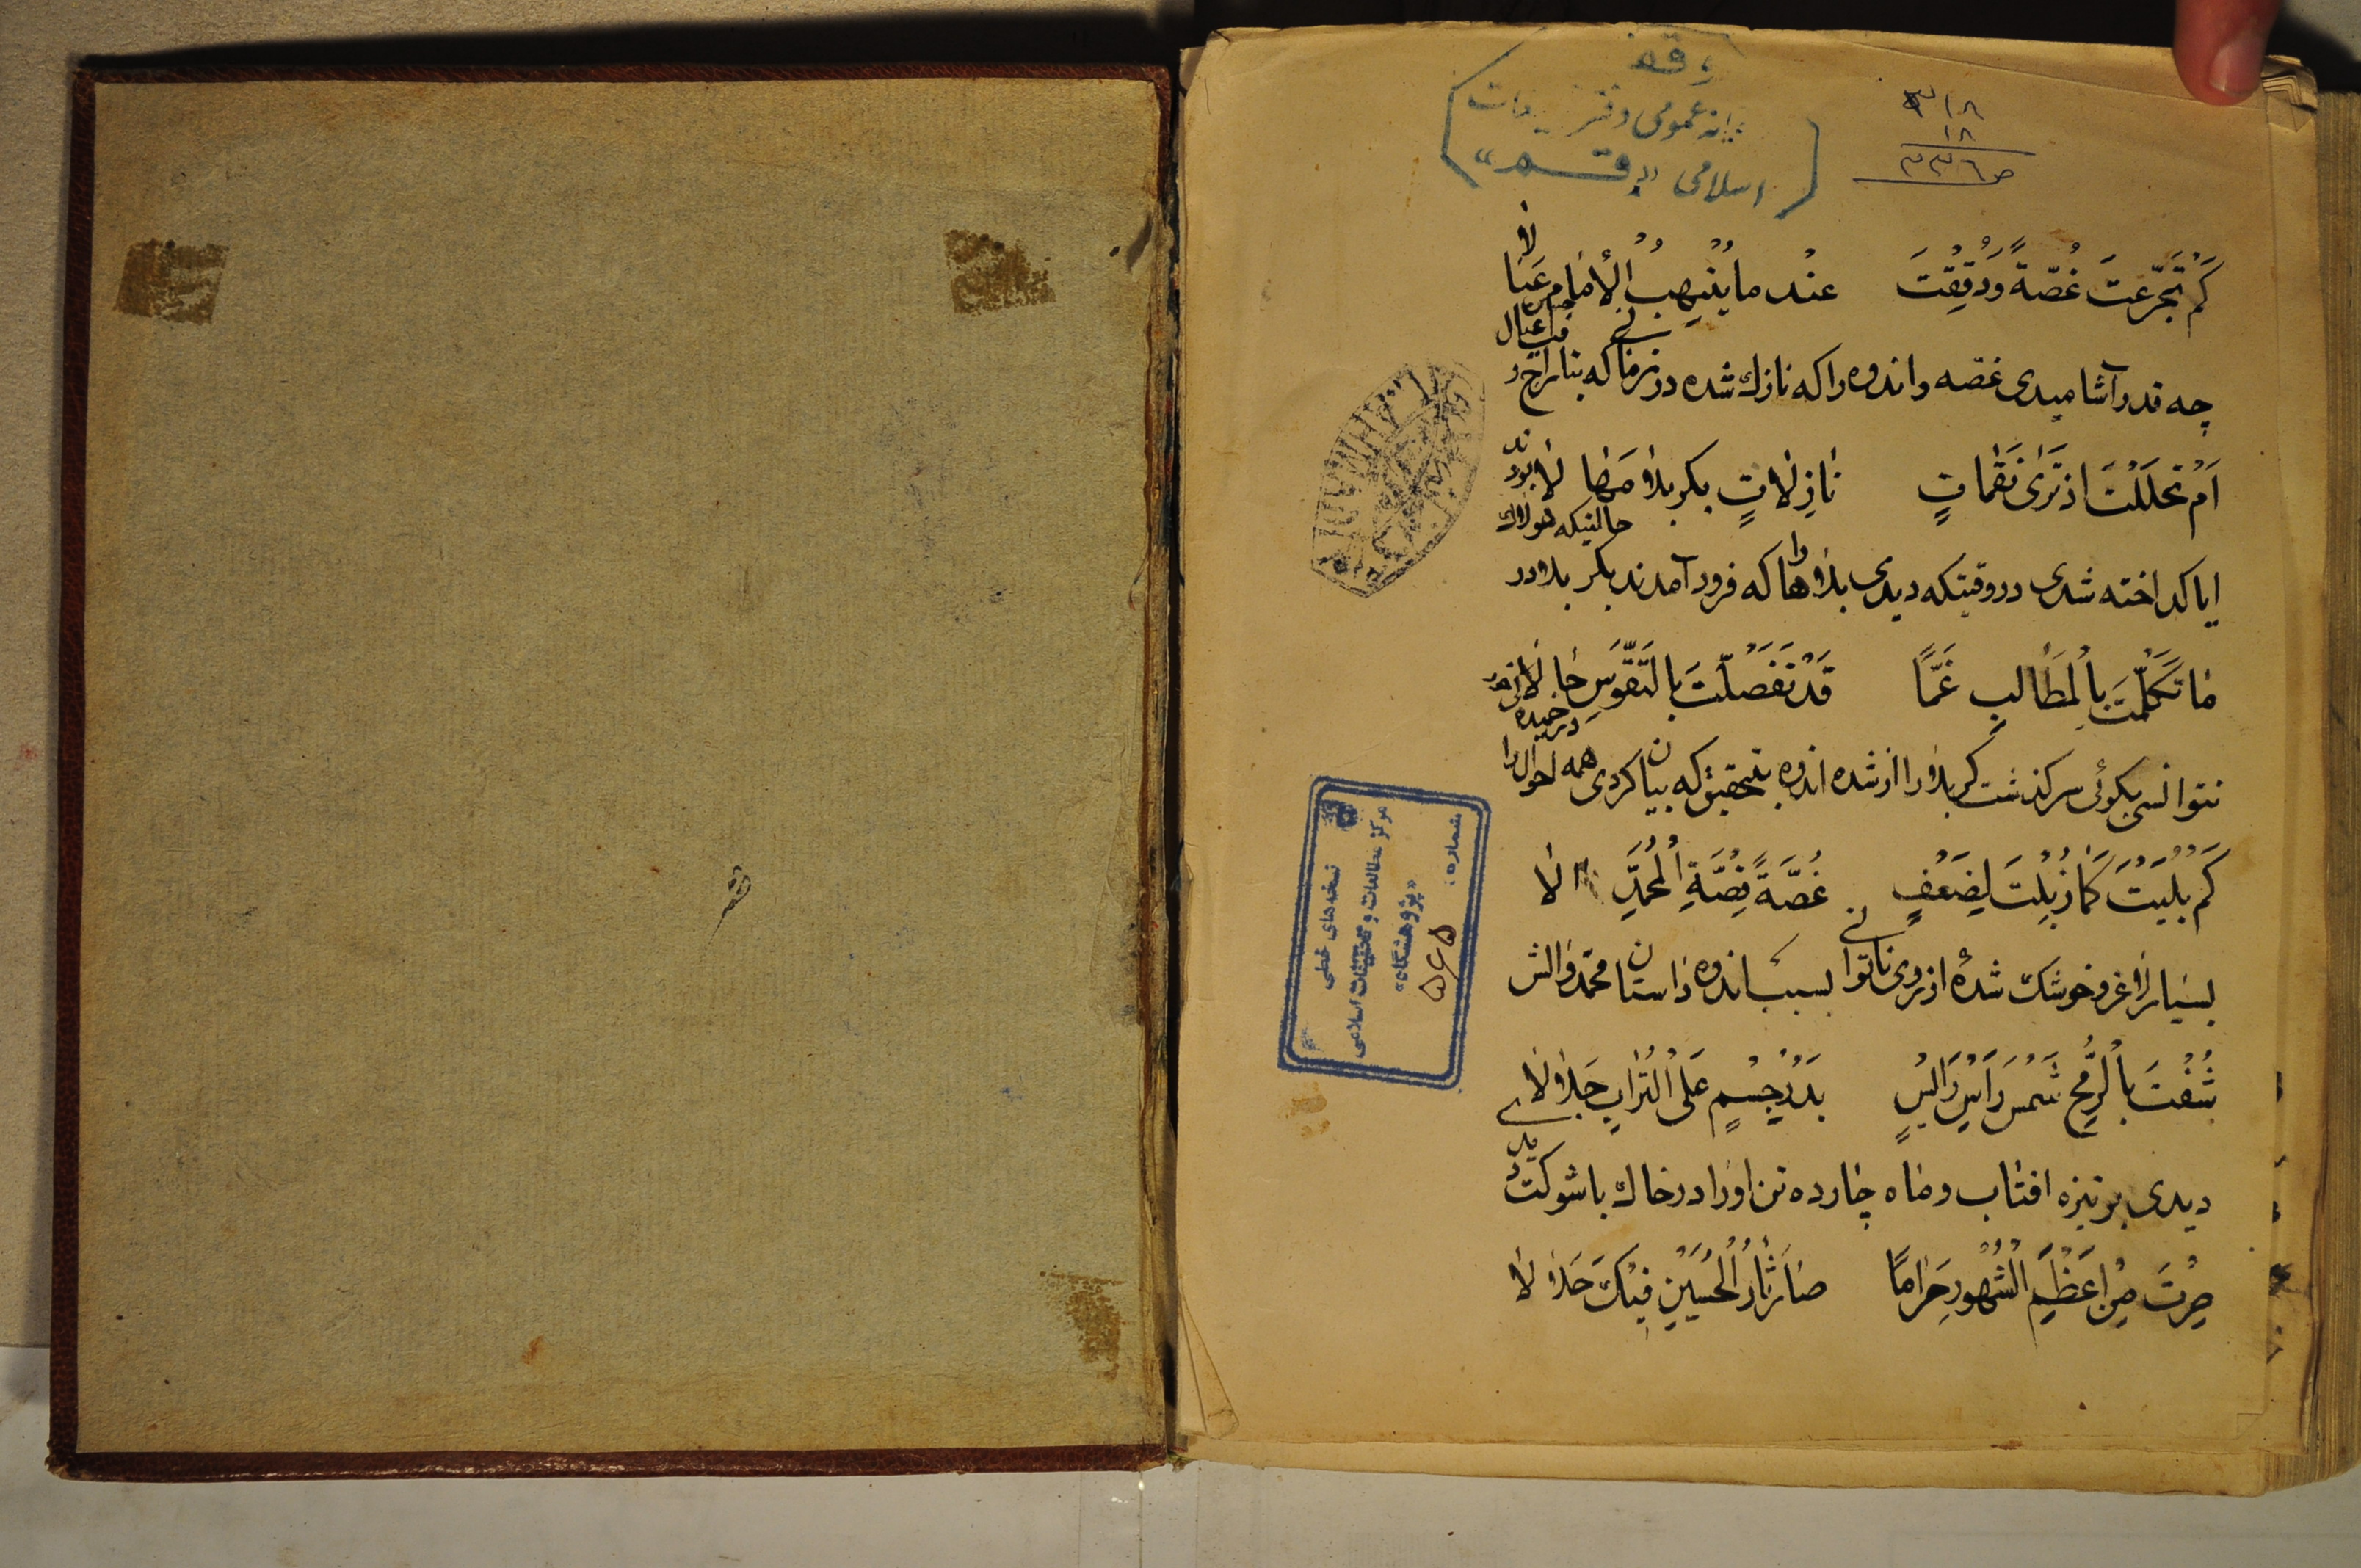 وقف
عمومی دفتر
اسلامی «قم»
۳۱۸
۱۸
۳۳۶ ص
كَمْ تَجَرَّعتَ غُصّةً وَدُقِقْتَ عنْد ما يُنْهِبُ الْأنامِ عَيَالا
چه قدر آشامیدی غصّه و اندوه را که نازك شده در زمانی که بتاراج
اَمْ تَحَلَّلْتَ اذ تَرٰی نَقَمٰاتٍ نٰازِلاتٍ بكربلاء مَهٰا لا
بودند
ایا کداخته شدی در وقتیکه دیدی بلاهارا که فرود آمدند بکربلا در
حالتیکه
مٰا تَكَلَّمْتَ بِالْمَطٰالبِ غَمًّا قَدْ تَفَصَّلْتَ بِالتَّقَوّسَ حٰا لا
نتوانسی بکوئی سرکذشت کربلا را از شده اندوه بتحقیق که بیان کردی همه احوال را
كَمْ بَلُيْتَ كَمٰا ذَبُلْتَ لِضَعْفٍ غُصَّةً قِصَّةِ الْمُحَمَّدِ الا
بسیار لاغر و خوشك شدهٔ از روی ناتوانی بسبب اندوه داستان محمّد و الش
شُفْتَ بالرُّمْحِ شَمْسَ رَاْسٍ رَاَيْسٍ بَدْرُ جِسْمٍ عَلَی الْتُرٰابِ جَلالا
دیدی بر نیزه افتاب و ماه چارده تن او را در خاك با شوکت
صِرْتَ مِنْ اعَظَمِ الْشُهُورِ حَرٰامًا صٰارَ ثٰارُ الْحُسَيْنِ فيٖكَ حَلالا
شماره:
۵۶۵
«پژوهشگاه»
مرکز مطالعات و تحقیقات اسلامی
نسخه‌های خطی